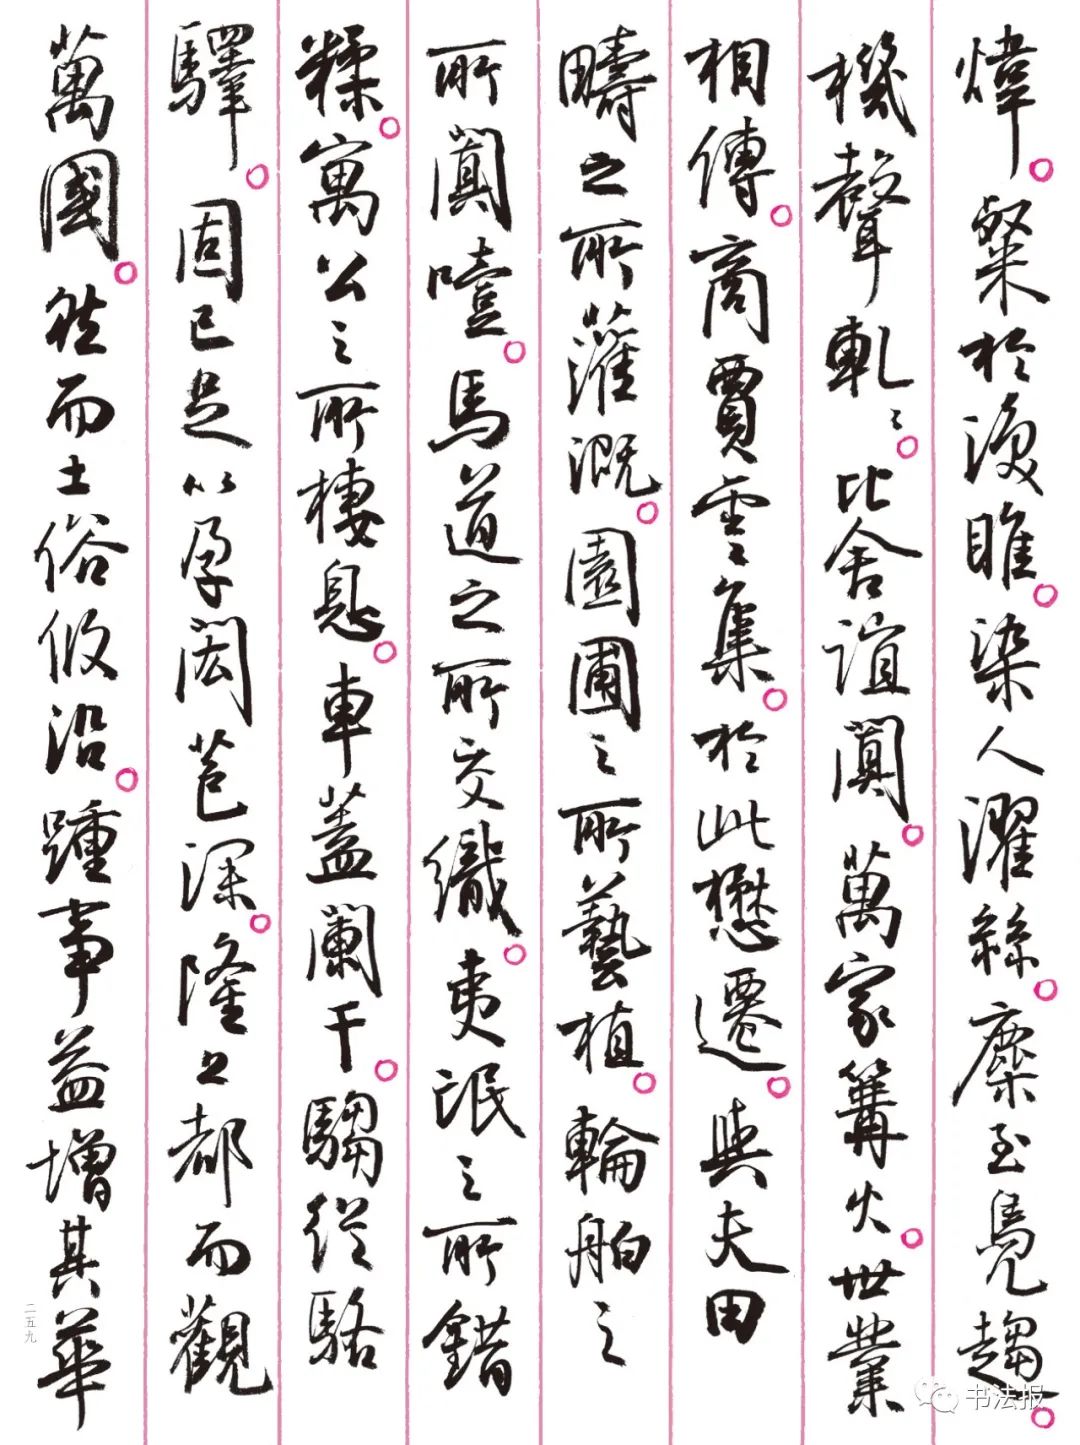 煒。粲於渙睢。染人濯絲。麇至鳧趨。
機聲軋〻。比舍諠闐。萬家篝火。世業
相傳。商賈雲集。於此懋遷。與夫田
疇之所灌溉。園圃之所藝植。輪舶之
所闐噎。馬道之所交織。夷氓之所錯
糅。寓公之所棲息。車蓋闌干。騶從駱
驛。固已足以孕閎苞深。隆上都而觀
萬國。然而土俗攸沿。踵事益增其華
二五九
书法报